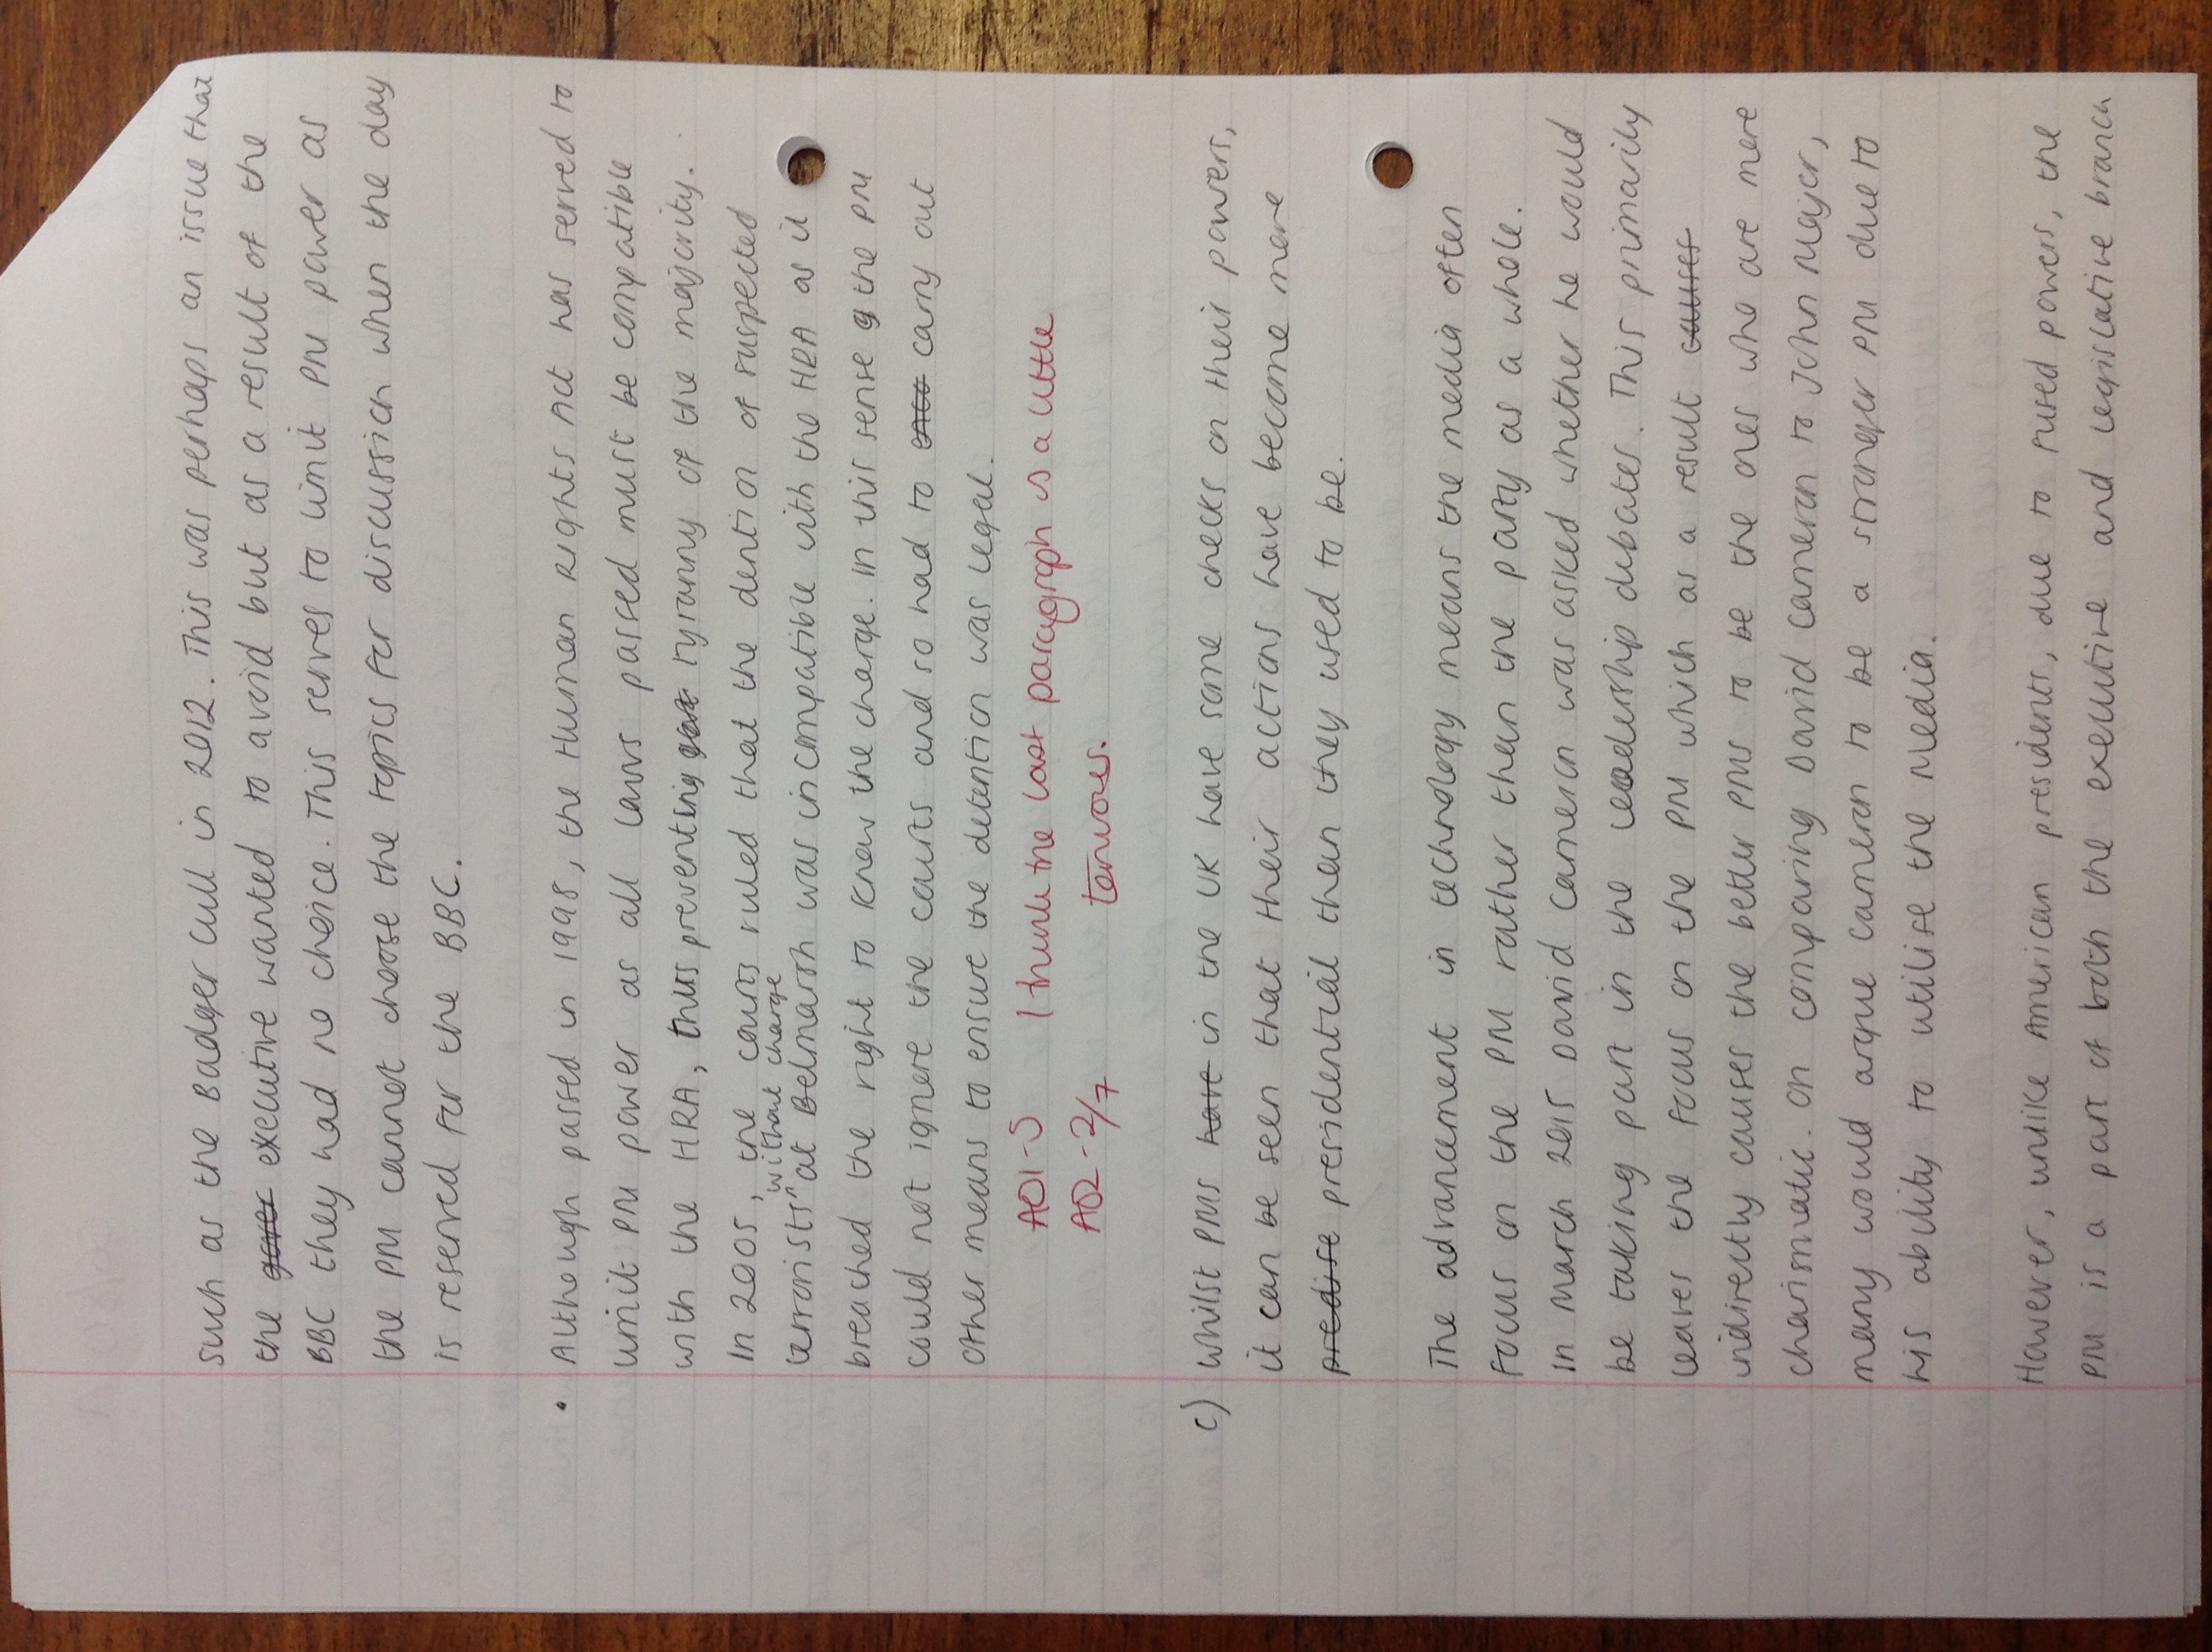 such as the Badger Cull in 2012. This was perhaps an issue that
the gover executive wanted to avoid but as a result of the
BBC they had no choice. This serves to limit PM power as
the PM cannot choose the topics for discussion when the day
is reserved for the BBC.
• Although passed in 1998, the Human Rights Act has served to
limit PM power as all laws passed must be compatible
with the HRA, thus preventing tyranny of the majority.
In 2005, the courts ruled that the dention of suspected
without charge
terrorists" at Belmarsh was incompatible with the HRA as it
breached the right to know the charge. In this sense the PM
could not ignore the courts and so had to carry out
other means to ensure the detention was legal.
AO1-5 I think the last paragraph is a little
AO2-2/7 tenuous.
c) Whilst PMs have in the UK have some checks on their powers,
it can be seen that their actions have become more
predise presidential than they used to be.
The advancement in technology means the media often
focus on the PM rather than the party as a whole.
In March 2015 David Cameron was asked whether he would
be taking part in the leadership debates. This primarily
leaves the focus on the PM which as a result causes
indirectly causes the better PMs to be the ones who are more
charismatic. On comparing David Cameron to John Major,
many would argue Cameron to be a stronger PM due to
his ability to utilise the media.
However, unlike American presidents, due to fused powers, the
PM is a part of both the executive and legislative branch